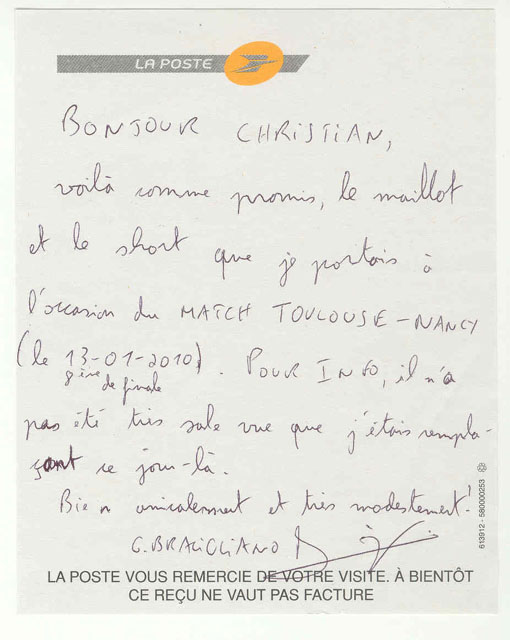 LA POSTE
BONJOUR CHRISTIAN,
voilà comme promis, le maillot
et le short que je portais à
l'occasion du MATCH TOULOUSE-NANCY
(le 13-01-2010). POUR INFO, il n'a
8ème de finale
pas été très sale vue que j'étais rempla-
çant ce jour-là.
Bien amicalement et très modestement!
C. BRACIGLIANO
613912 - 580000253
LA POSTE VOUS REMERCIE DE VOTRE VISITE. À BIENTÔT
CE REÇU NE VAUT PAS FACTURE